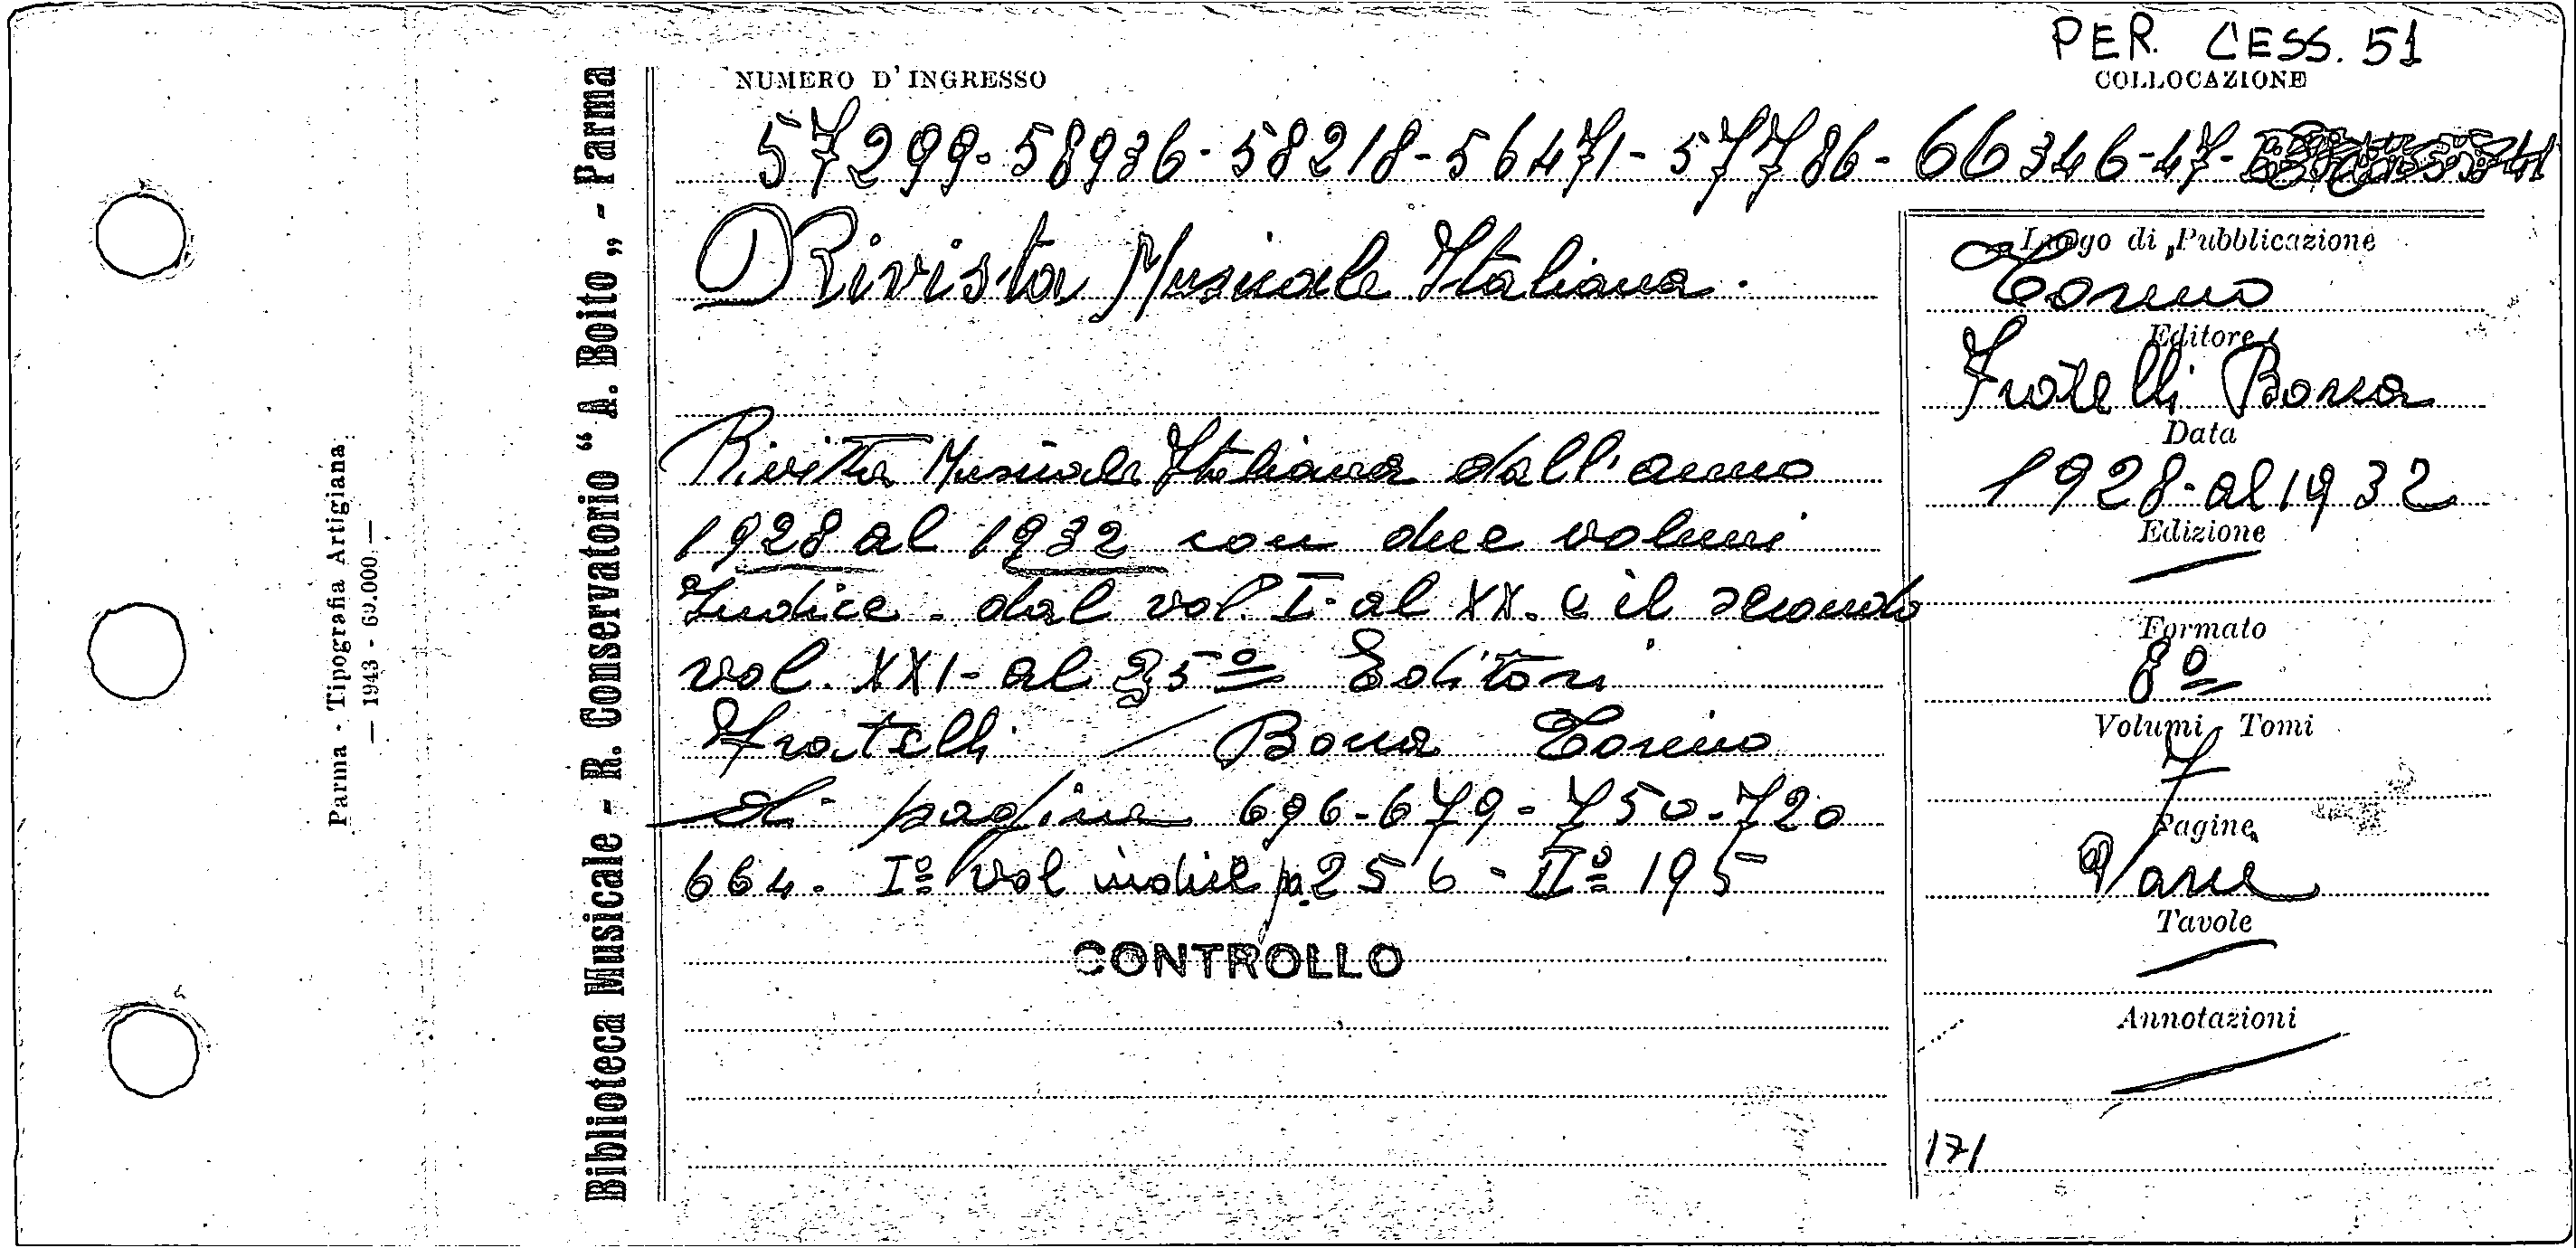 PER. CESS. 51
NUMERO D'INGRESSO
COLLOCAZIONE
57299-58936-58218-56471-57786-66346-47-
Rivista Musicale Italiana.
Rivista Musicale Italiana dall'anno
1928 al 1932 con due volumi
Indice. dal vol. I- al XX. e il secondo
vol. XXI- al 35º Editori
Fratelli / Bocca Torino
di pagine 696-679-750-720
664. Iº vol indice p. 256 - IIº 195
CONTROLLO
Luogo di Pubblicazione
Torino
Editore
Fratelli Bocca
Data
1928-al 1932
Edizione
Formato
8º
Volumi - Tomi
7
Pagine
Varie
Tavole
Annotazioni
171
Biblioteca Musicale - R. Conservatorio “ A. Boito „ - Parma
Parma - Tipografia Artigiana
— 1943 - 60.000 —